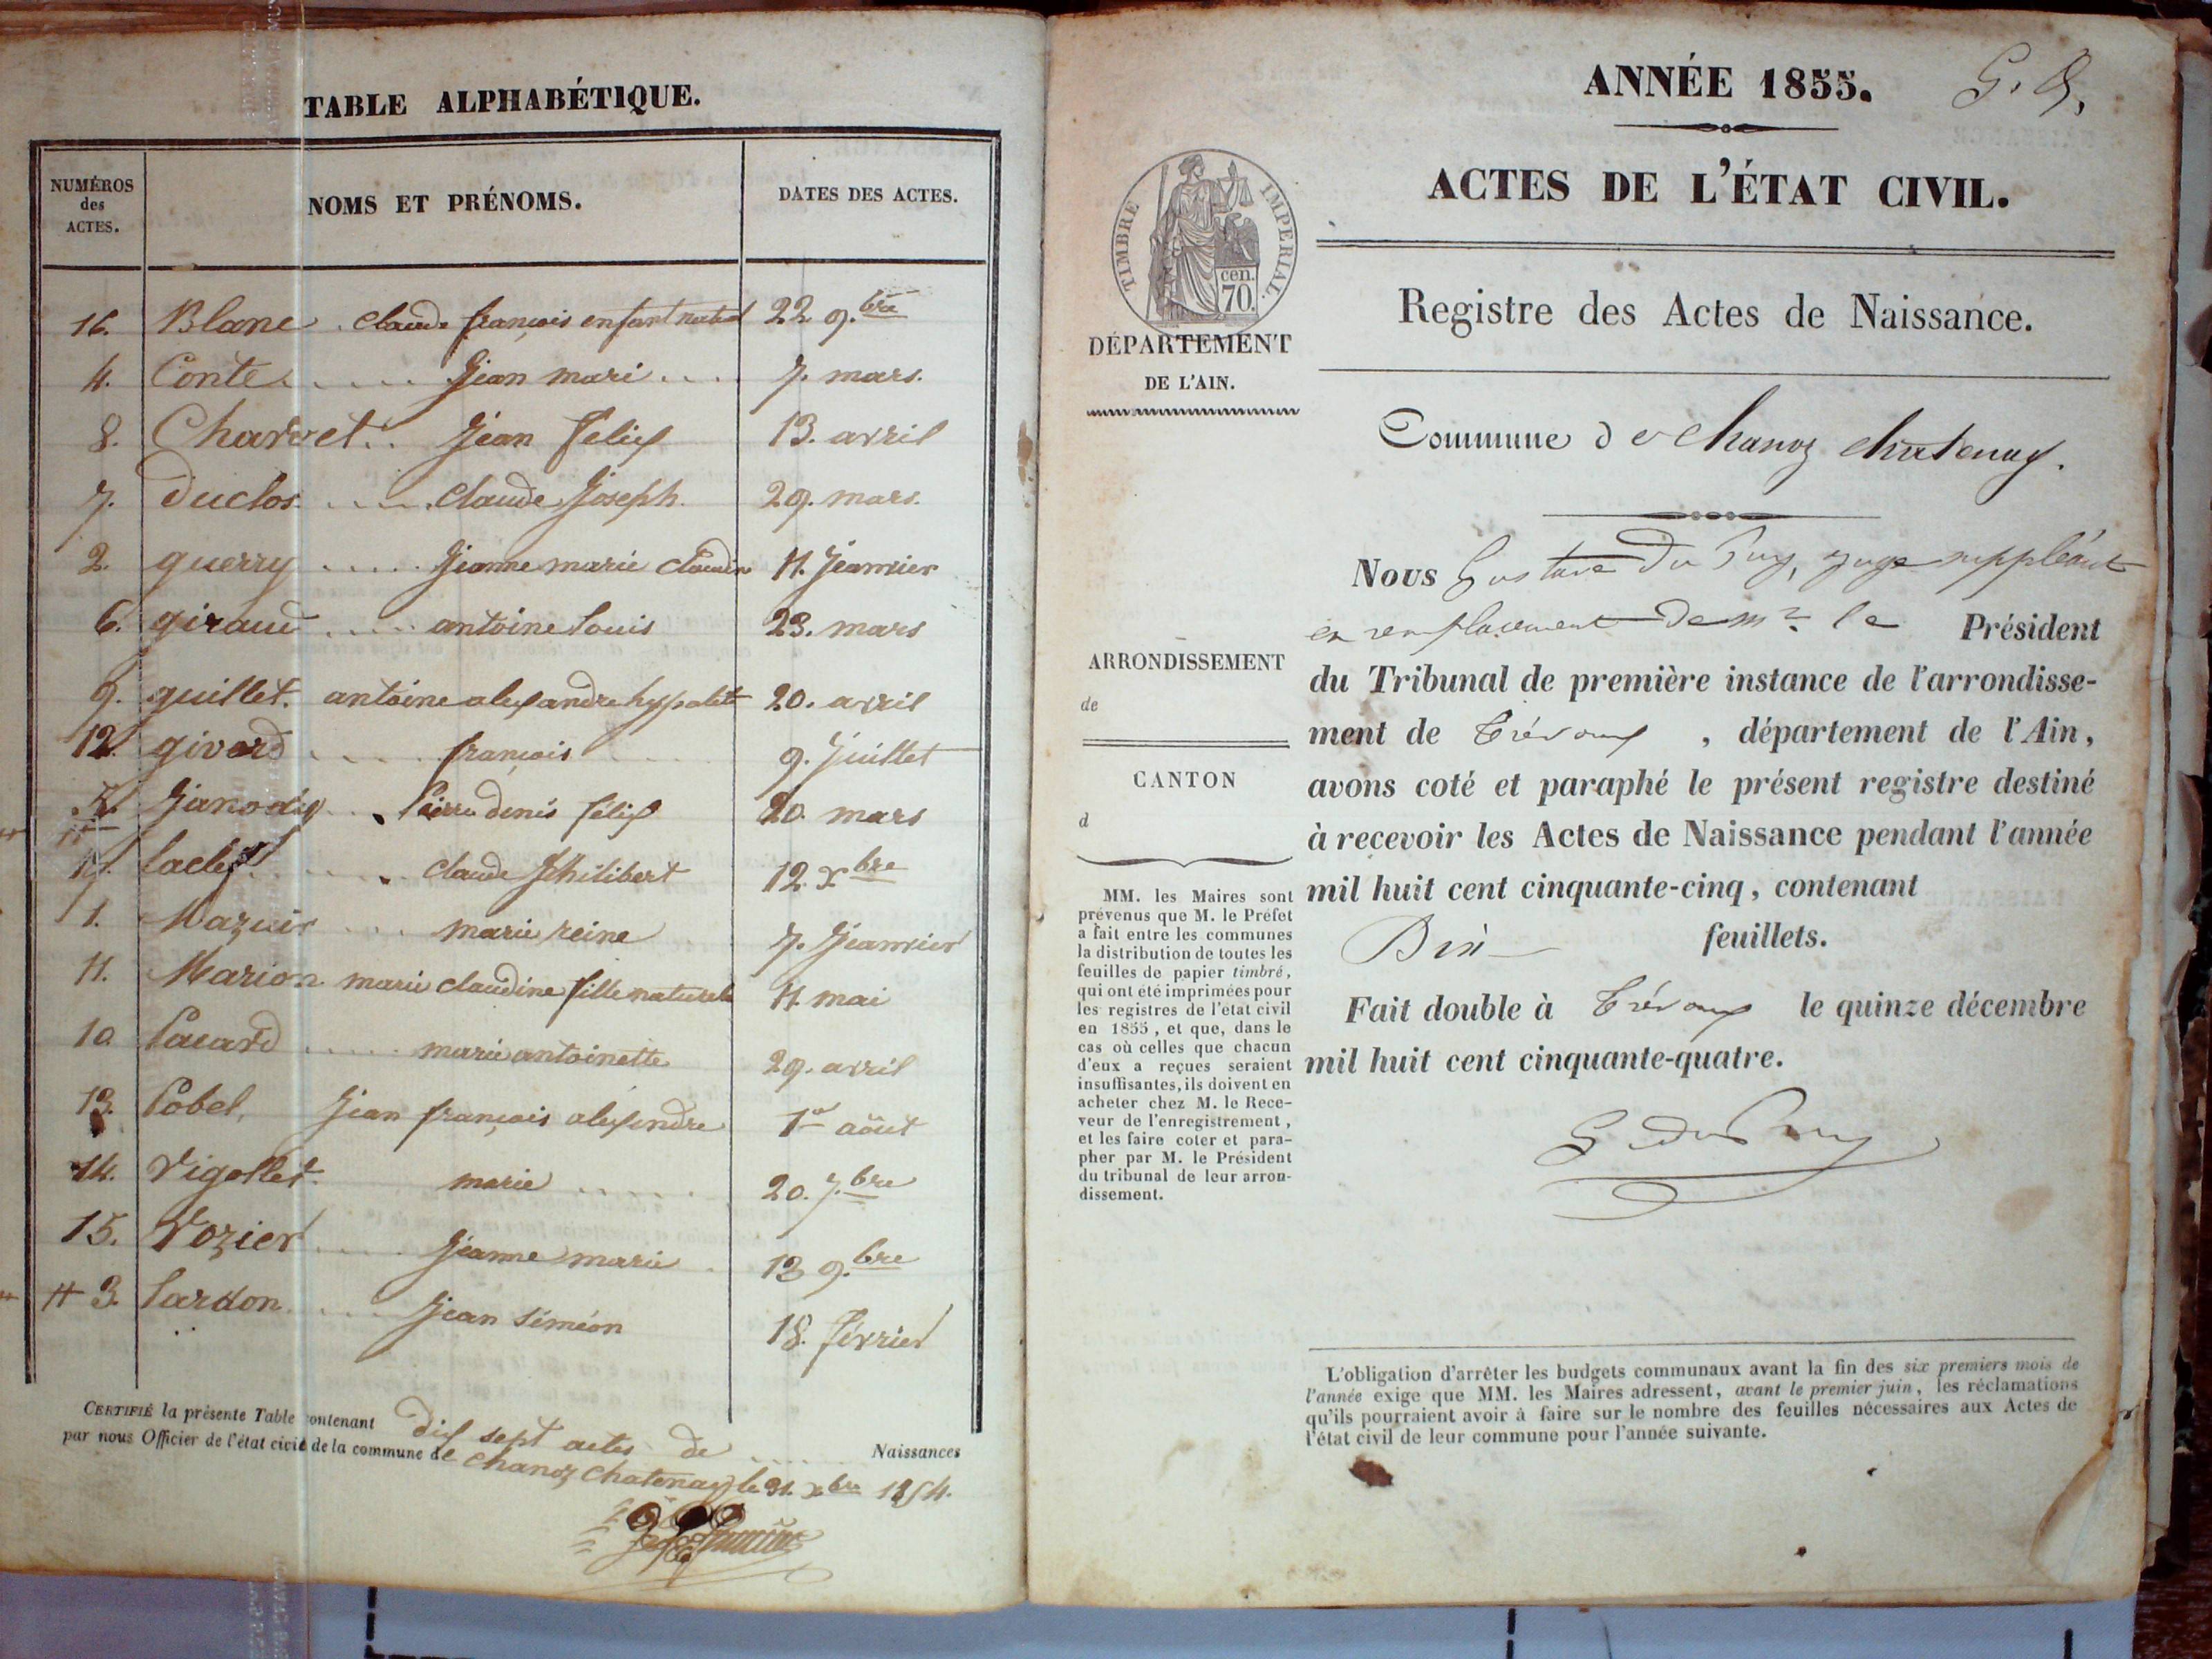 TABLE ALPHABÉTIQUE.
NUMÉROS des ACTES. NOMS ET PRÉNOMS. DATES DES ACTES.
16. Blanc claude françois enfant naturel 22 9.bre
4. Conte Jean mari 7. mars.
8. Charvet Jean felix 13. avril
7. Duclos claude Joseph 29. mars.
2. guerry Jeanne marie claudine 11. Jeanvier
6. giraud antoine Louis 23. mars
9. guillet. antoine alexandre hyppolite 20. avril
12. givord françois 9. Juillet
5. Janody Pierre denis félix 20. mars
17. claude Philibert 12. Xbre
1. Mazuir marie reine 7. Jeanvier
11. Marion marie claudine fille naturele 11. mai
10 Pacard marie antoinette 29. avril
13. Pobel, Jean françois alexendre 1er août
14. Vigollet marie 20. 7.bre
15. Vozier Jeanne marie 13 9.bre
3. Pardon Jean siméon 18. février
CERTIFIÉ la présente Table contenant dix sept actes de Naissances
par nous Officier de l'état civil de la commune de chanoz chatenay le 31. xbre 1854.
ANNÉE 1855.
ACTES DE L'ÉTAT CIVIL.
TIMBRE IMPERIAL.
cen.
70.
DÉPARTEMENT
DE L'AIN.
Registre des Actes de Naissance.
Commune de chanoz chatenay.
Nous Gustave Du Puy, juge suppléant
en remplacement de mr. le Président
du Tribunal de première instance de l'arrondisse-
ment de Trévoux , département de l'Ain,
avons coté et paraphé le présent registre destiné
à recevoir les Actes de Naissance pendant l'année
mil huit cent cinquante-cinq, contenant
Dix feuillets.
Fait double à Trévoux le quinze décembre
mil huit cent cinquante-quatre.
G Du Puy
ARRONDISSEMENT
de
CANTON
d
MM. les Maires sont
prévenus que M. le Préfet
a fait entre les communes
la distribution de toutes les
feuilles de papier timbré,
qui ont été imprimées pour
les registres de l'état civil
en 1855, et que, dans le
cas où celles que chacun
d'eux a reçues seraient
insuffisantes, ils doivent en
acheter chez M. le Rece-
veur de l'enregistrement,
et les faire coter et para-
pher par M. le Président
du tribunal de leur arron-
dissement.
L'obligation d'arrêter les budgets communaux avant la fin des six premiers mois de
l'année exige que MM. les Maires adressent, avant le premier juin, les réclamations
qu'ils pourraient avoir à faire sur le nombre des feuilles nécessaires aux Actes de
l'état civil de leur commune pour l'année suivante.